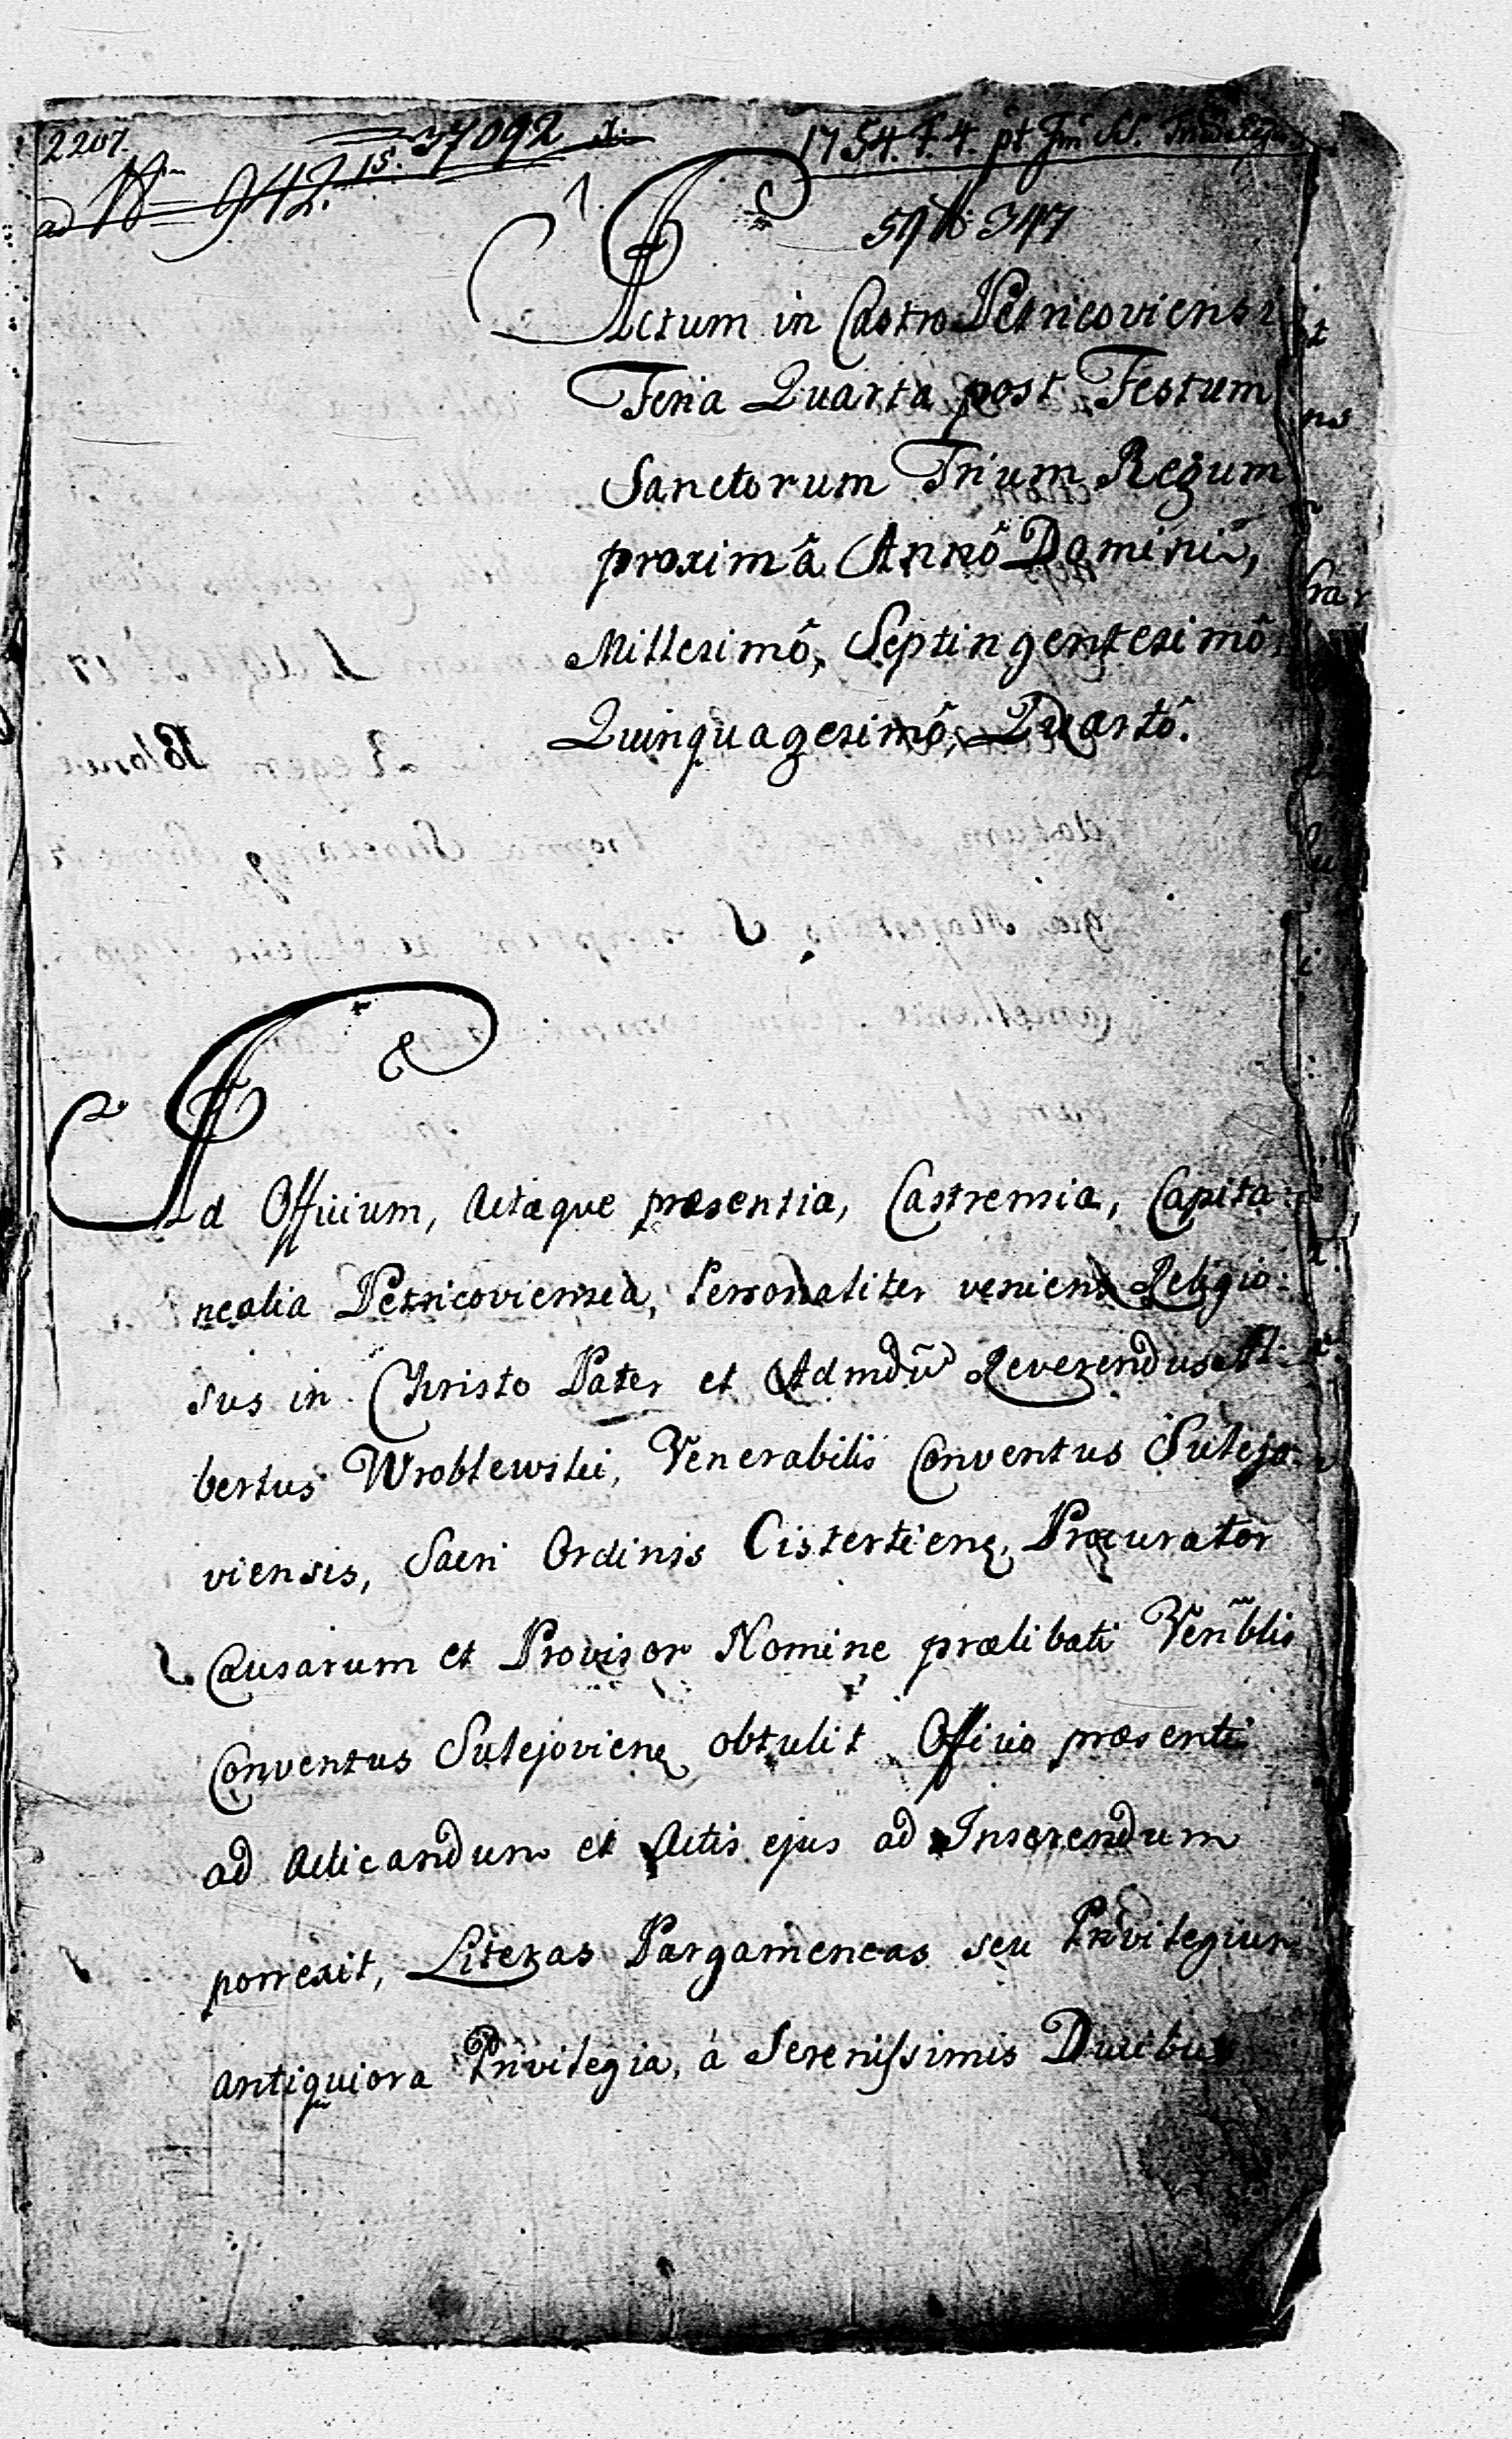 2207.
37092
1754. F. 4. pt
ad Nrm 942. 15.
1.
59 N: 347
Actum in Castro Petricoviensi
Feria Quarta post Festum
Sanctorum Trium Regum
proximâ Annô Domini,
Millesimô, Septingentesimô,
Quinquagesimô, Quartô.
Ad Officium, Actaque præsentia, Castrensia, Capita:
nealia Petricoviensia, Personaliter veniens Religio:
sus in Christo Pater et Admdũ Reverendus Al:
bertus Wroblewski, Venerabilis Conventus Sulejo:
viensis, Sacri Ordinis Cistertienę, Procurator
Causarum et Provisor Nomine prælibati Venb̃lis
Conventus Sulejovienę obtulit Officio præsenti
ad Acticandum et Actis ejus ad Inserendum
porrexit, Literas Pargameneas seu Privilegium
antiquiora Privilegia, à Serenissimis Ducibus